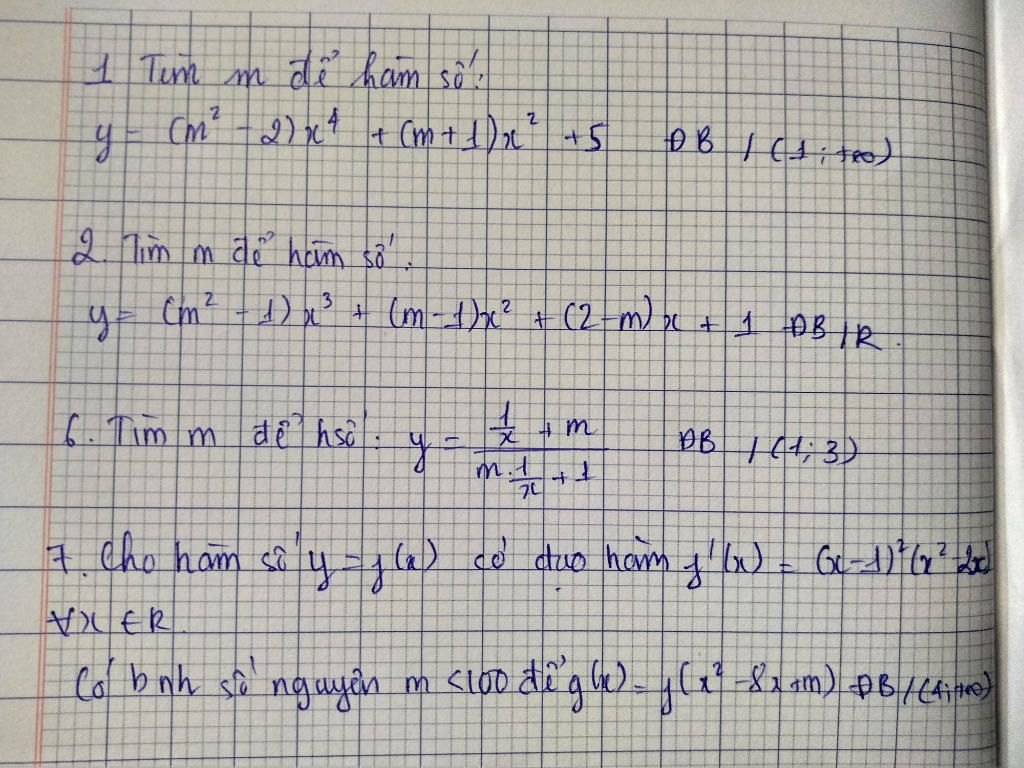 1 Tìm m để hàm số:
y = (m² - 2)x⁴ + (m+1)x² + 5 ĐB / (1; +∞)
2. Tìm m để hàm số:
y = (m² - 1)x³ + (m-1)x² + (2-m)x + 1 ĐB / R.
6. Tìm m để hsố: y = (1/x + m)/(m.1/x + 1) ĐB / (1; 3)
7. Cho hàm số y = f(x) có đạo hàm f'(x) = (x-1)²(x²-2x)
∀x ∈ R
Có bnh số nguyên m <100 để g(x) = f(x² - 8x + m) ĐB / (4; +∞)